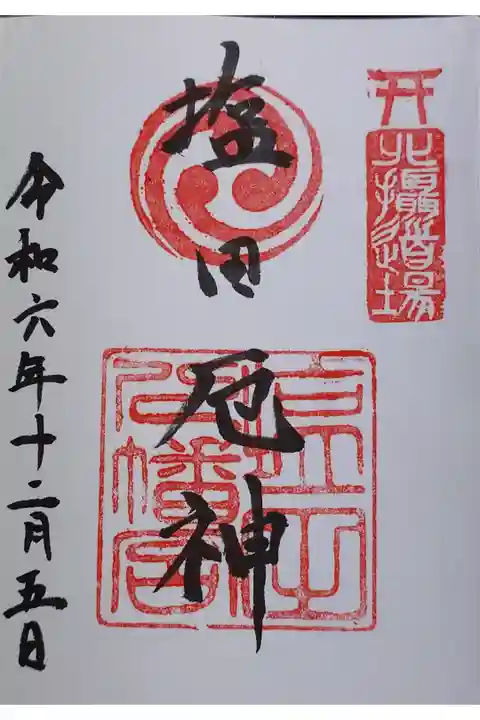 北攝道場
塩田厄神
八幡宮
令和六年十二月五日